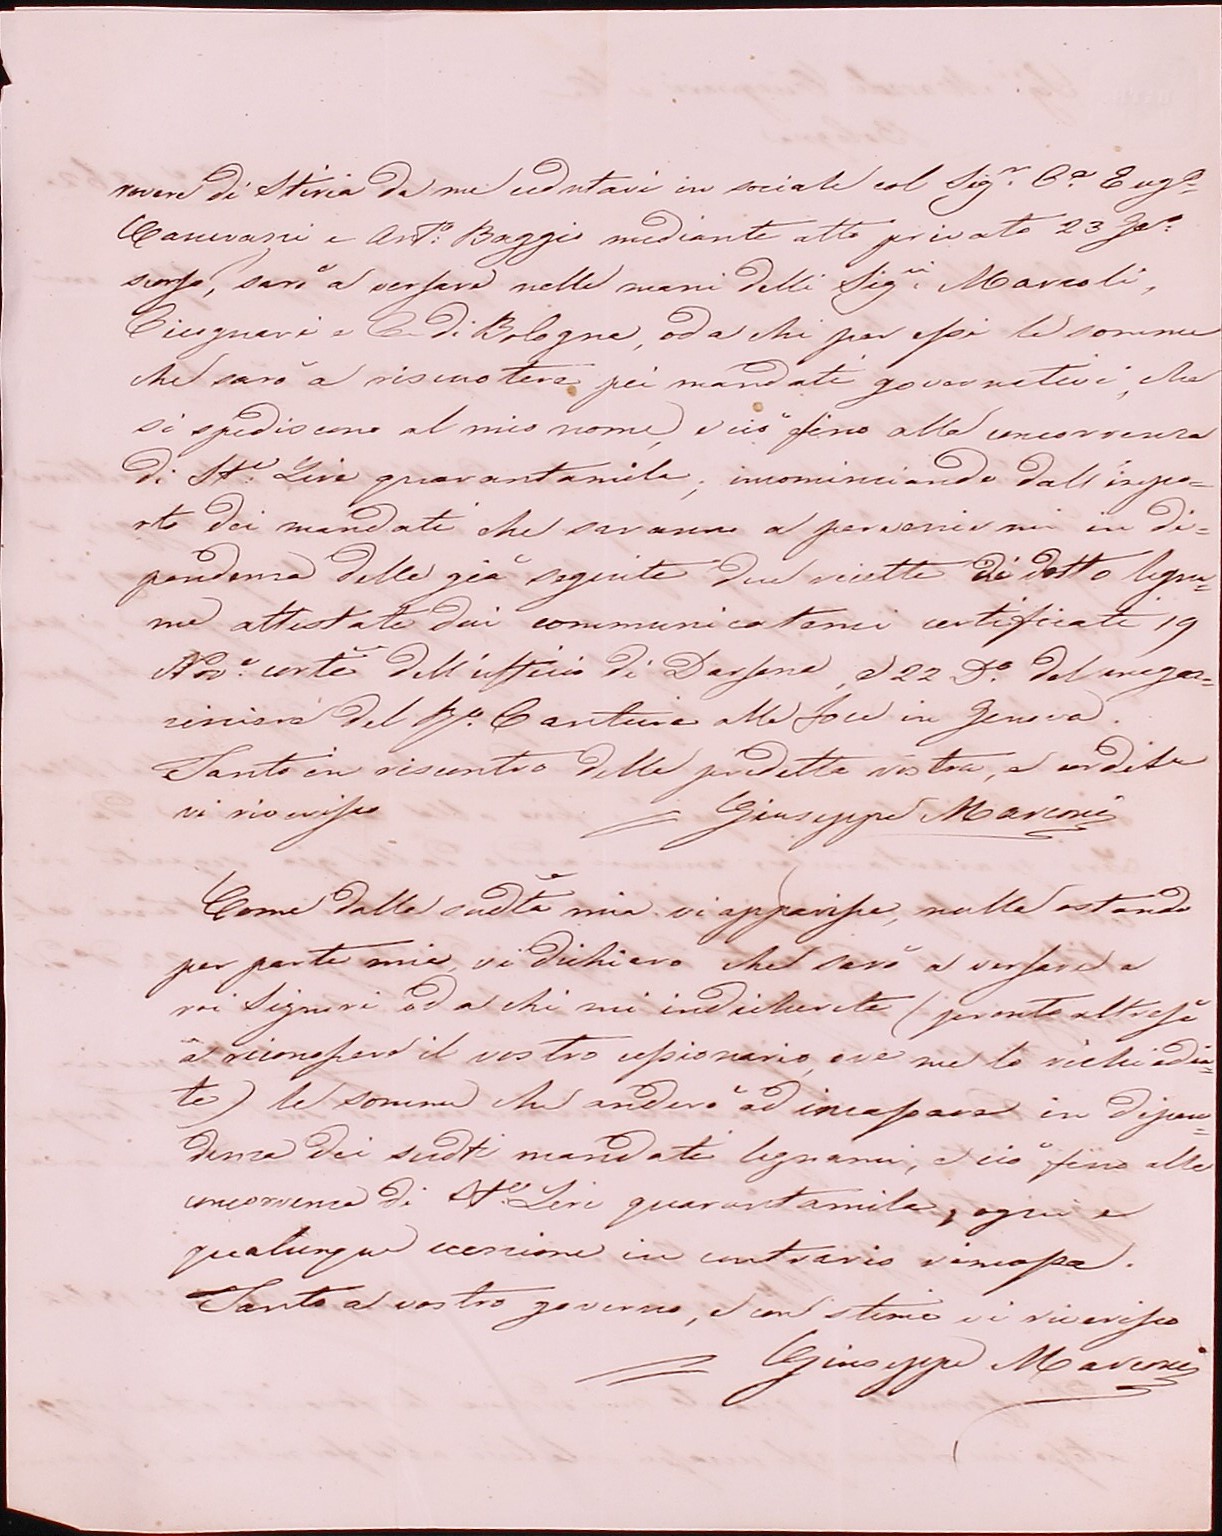 rovere di Stiria da me cedutavi in sociale col Sig.r C.e Eug.o
Canevari e Ant.o Baggio mediante atto privato 23 Ge.o
scorso, sarò a versare nelle mani delli Sig.ri Marcoli,
Cicognari e C. di Bologna, od a chi per essi le somme
che sarò a riscuotere pei mandati governativi, che
si spediscono al mio nome, e ciò fino alla concorrenza
di It.e Lire quarantamila, incominciando dall'impo=
rto dei mandati che saranno a pervenirmi in di=
pendenza delle già seguite due ricette di detto legna=
me attestate dai communicatemi certificati 19
Nov.e corr.te dell'ufficio di Darsena, e 22 D.o del magaz=
ziniere del R.o Cantiere alla foce in Genova.
Tanto in riscontro della predetta vostra, e cordiale
vi riverisco Giuseppe Marconi
Come dalla sudta mia vi apparisce, nulla ostando
per parte mia, vi dichiaro che sarò a versare a
voi Signori od a chi mi indicherete (pronto altresì
a riconoscere il vostro cessionario, ove me lo richiedia=
te) le somme che anderò ad incassare in dipen=
denza dei sudti mandati legnami, e ciò fino alla
concorrenza di It.e Lire quarantamila, ogni e
qualunque eccezione in contrario rimossa.
Tanto a vostro governo, e con stima vi riverisco
Giuseppe Marconi